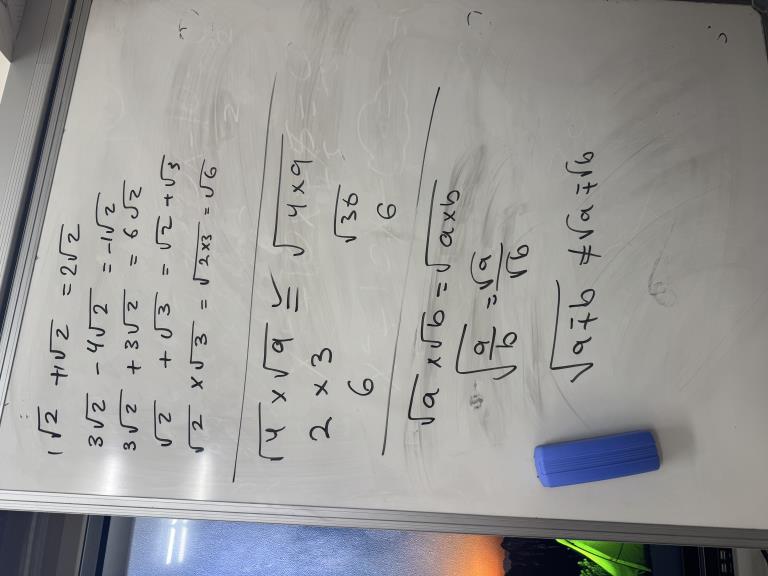 1√2 + 1√2 = 2√2
3√2 - 4√2 = -1√2
3√2 + 3√2 = 6√2
√2 + √3 = √2 + √3
√2 × √3 = √2×3 = √6
√4 × √9 = √4×9
2 × 3 √36
6 6
√a × √b = √a×b
√a/b = √a/√b
√a∓b ≠ √a ∓ √b